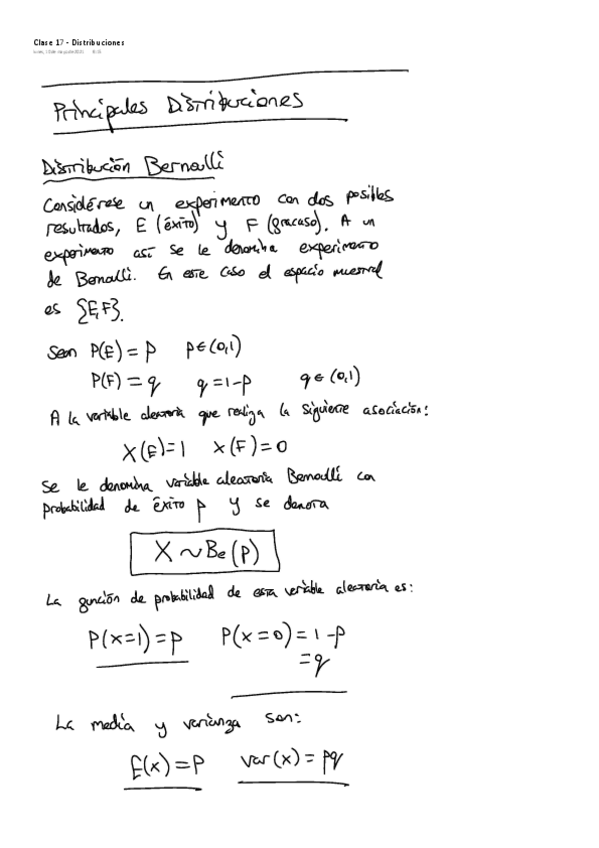 Clase 17 - Distribuciones
Principales Distribuciones
Distribución Bernoulli
Considérese un experimento con dos posibles
resultados, E (éxito) y F (fracaso). A un
experimento así se le denomina experimento
de Bernoulli. En este caso el espacio muestral
es {E,F}.
Sean P(E) = p p∈(0,1)
P(F) = q q = 1-p q ∈ (0,1)
A la variable aleatoria que realiza la siguiente asociación:
X(E)=1 X(F)=0
se le denomina variable aleatoria Bernoulli con
probabilidad de éxito p y se denota
X ~ Be(p)
La función de probabilidad de esta variable aleatoria es:
P(x=1)=p P(x=0)=1-p
=q
La media y varianza son:
E(x)=p var(x)=pq